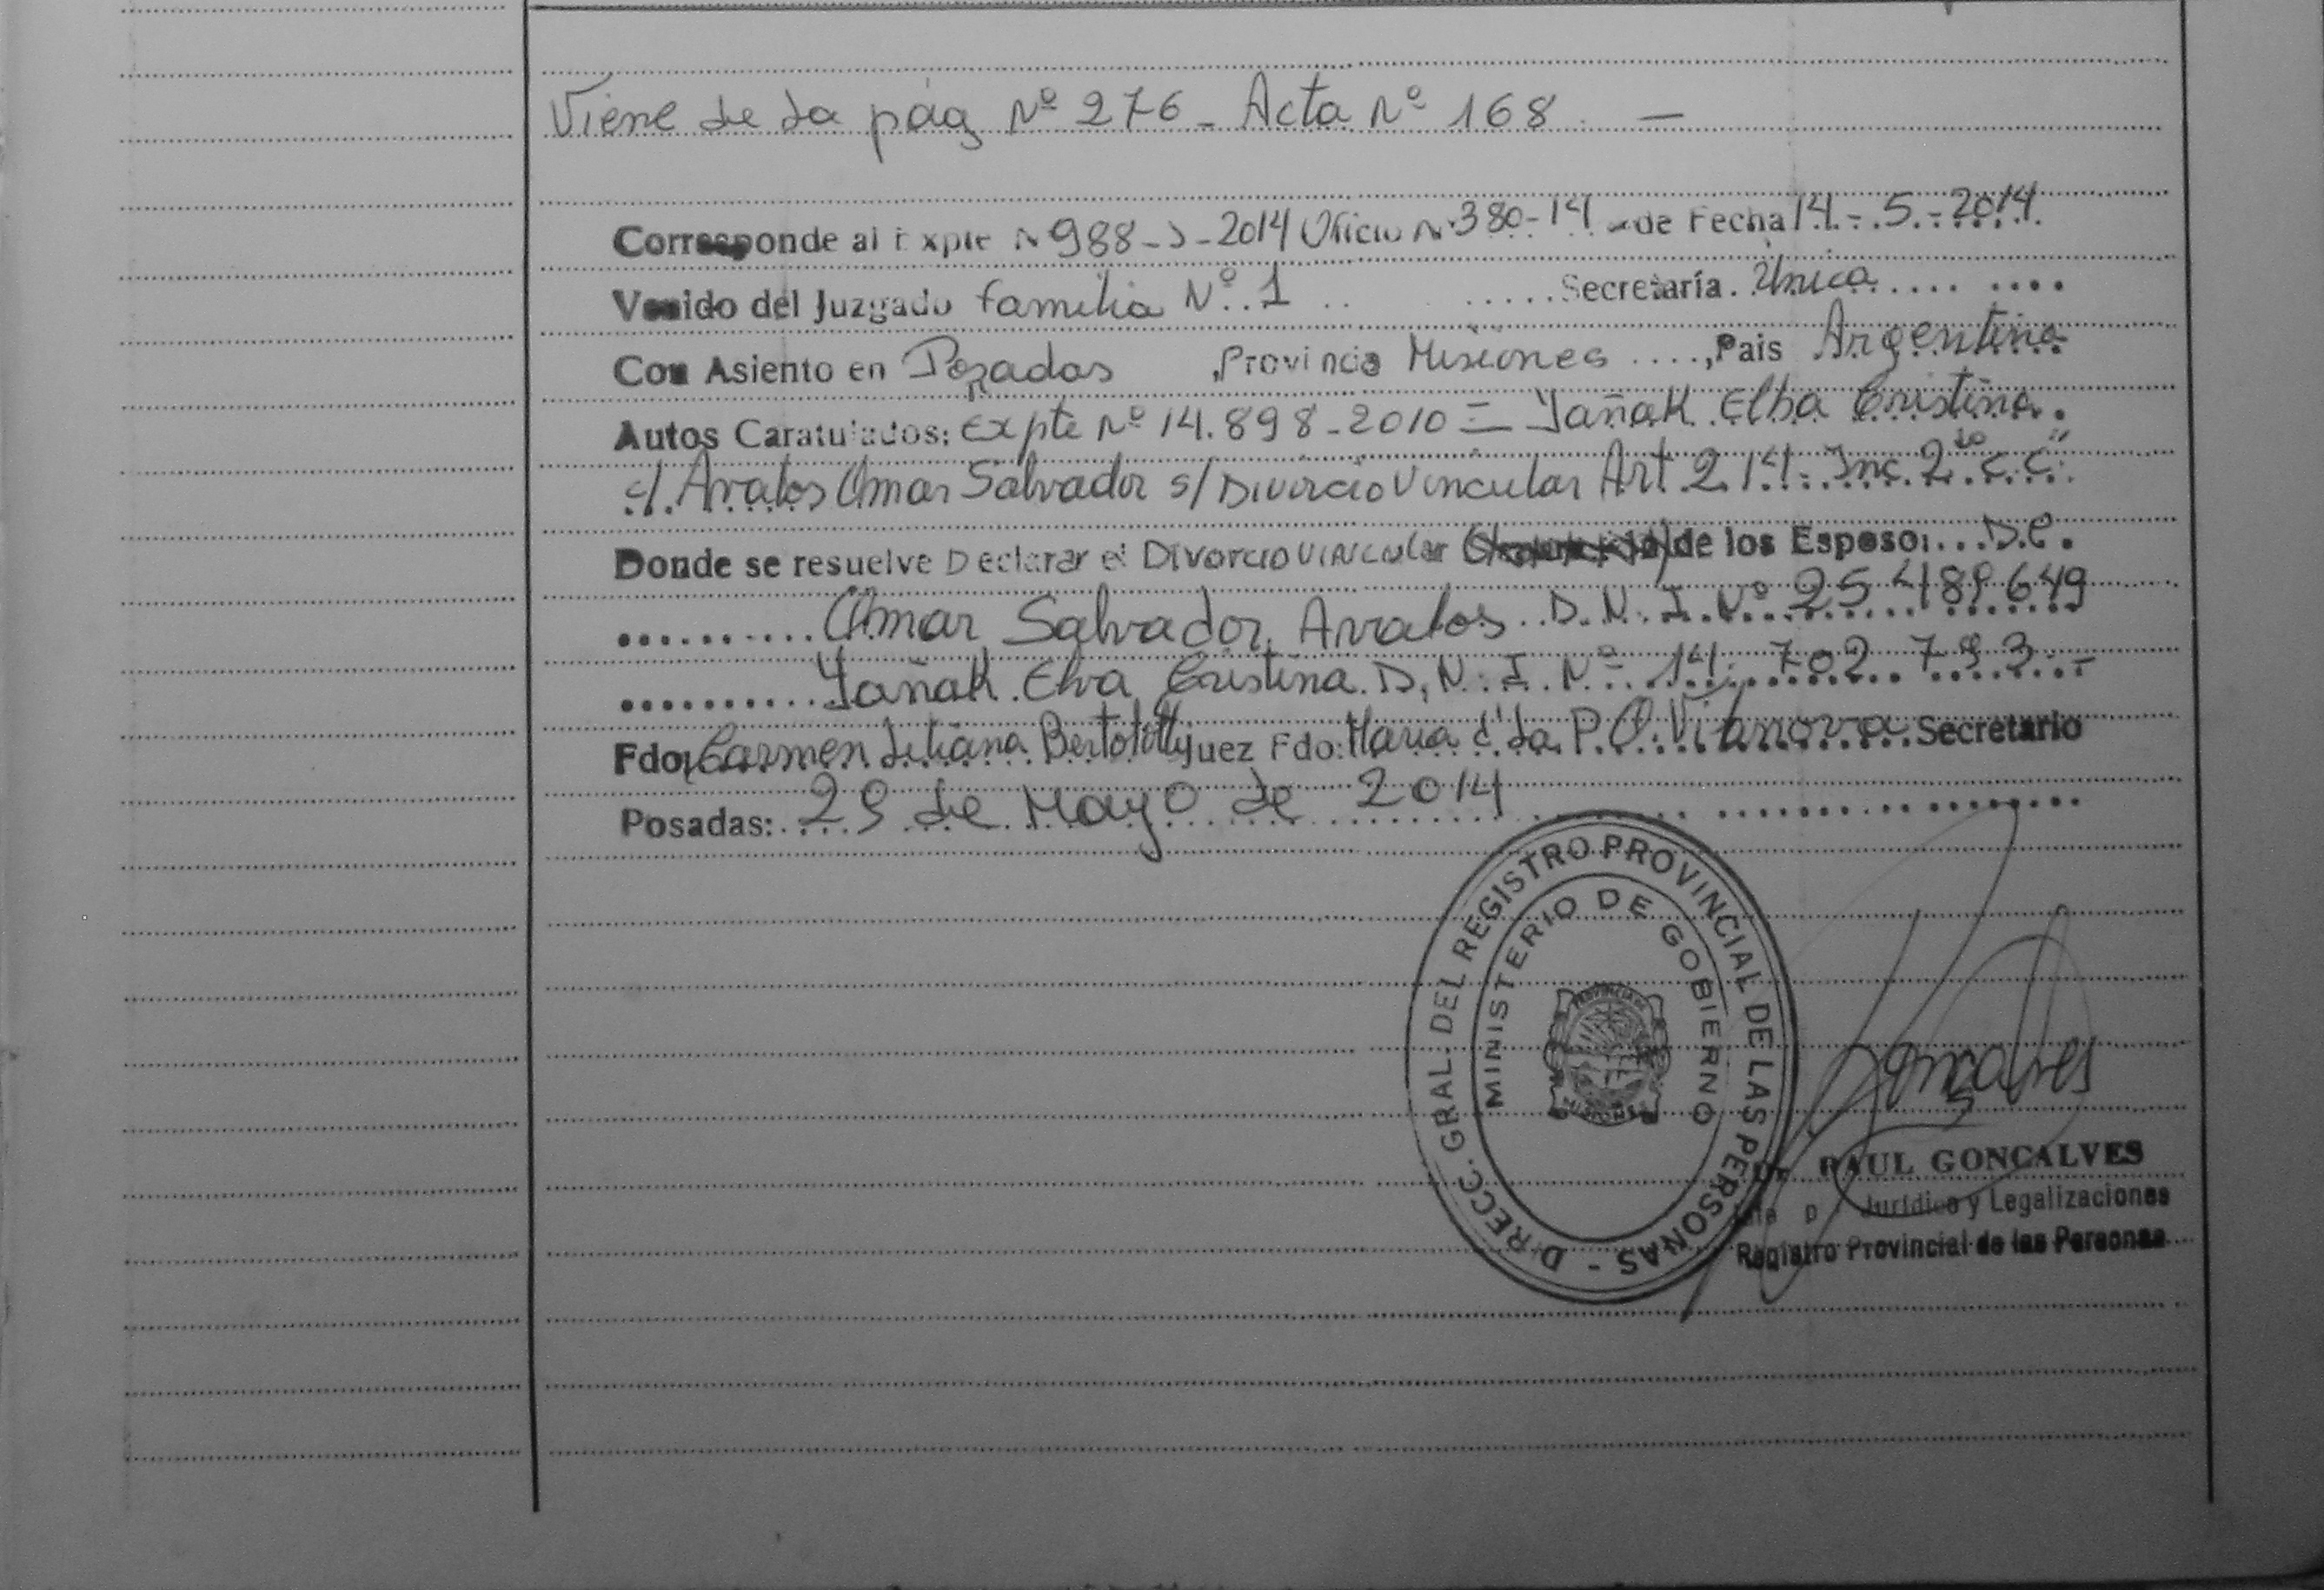 Viene de la pág Nº 276 - Acta Nº 168 —
Corresponde al Expte Nº 988-J-2014 Oficio Nº 380-14 - de Fecha 14 - 5 - 2014
Venido del Juzgado Familia Nº 1 Secretaría Única
Con Asiento en Posadas, Provincia Misiones, País Argentina
Autos Caratulados: Expte Nº 14.898-2010 = Yañak Elba Cristina
c/ Avalos Omar Salvador s/ Divorcio Vincular Art 214 - Inc. 2do C.C"
Donde se resuelve Declarar el Divorcio Vincular de los Esposos D.C.
Omar Salvador Avalos D.N.I. Nº 25 489 649
Yañak Elva Cristina D.N.I. Nº 14.702.793.-
Fdo: Carmen Liliana Bertolotty Juez Fdo: Maria d' la P. O. Vilanova Secretario
Posadas: 29 de Mayo de 2014
DIRECC. GRAL. DEL REGISTRO PROVINCIAL DE LAS PERSONAS -
MINISTERIO DE GOBIERNO
PROVINCIA DE
MISIONES
Goncalves
RAUL GONCALVES
Jurídico y Legalizaciones
Registro Provincial de las Personas